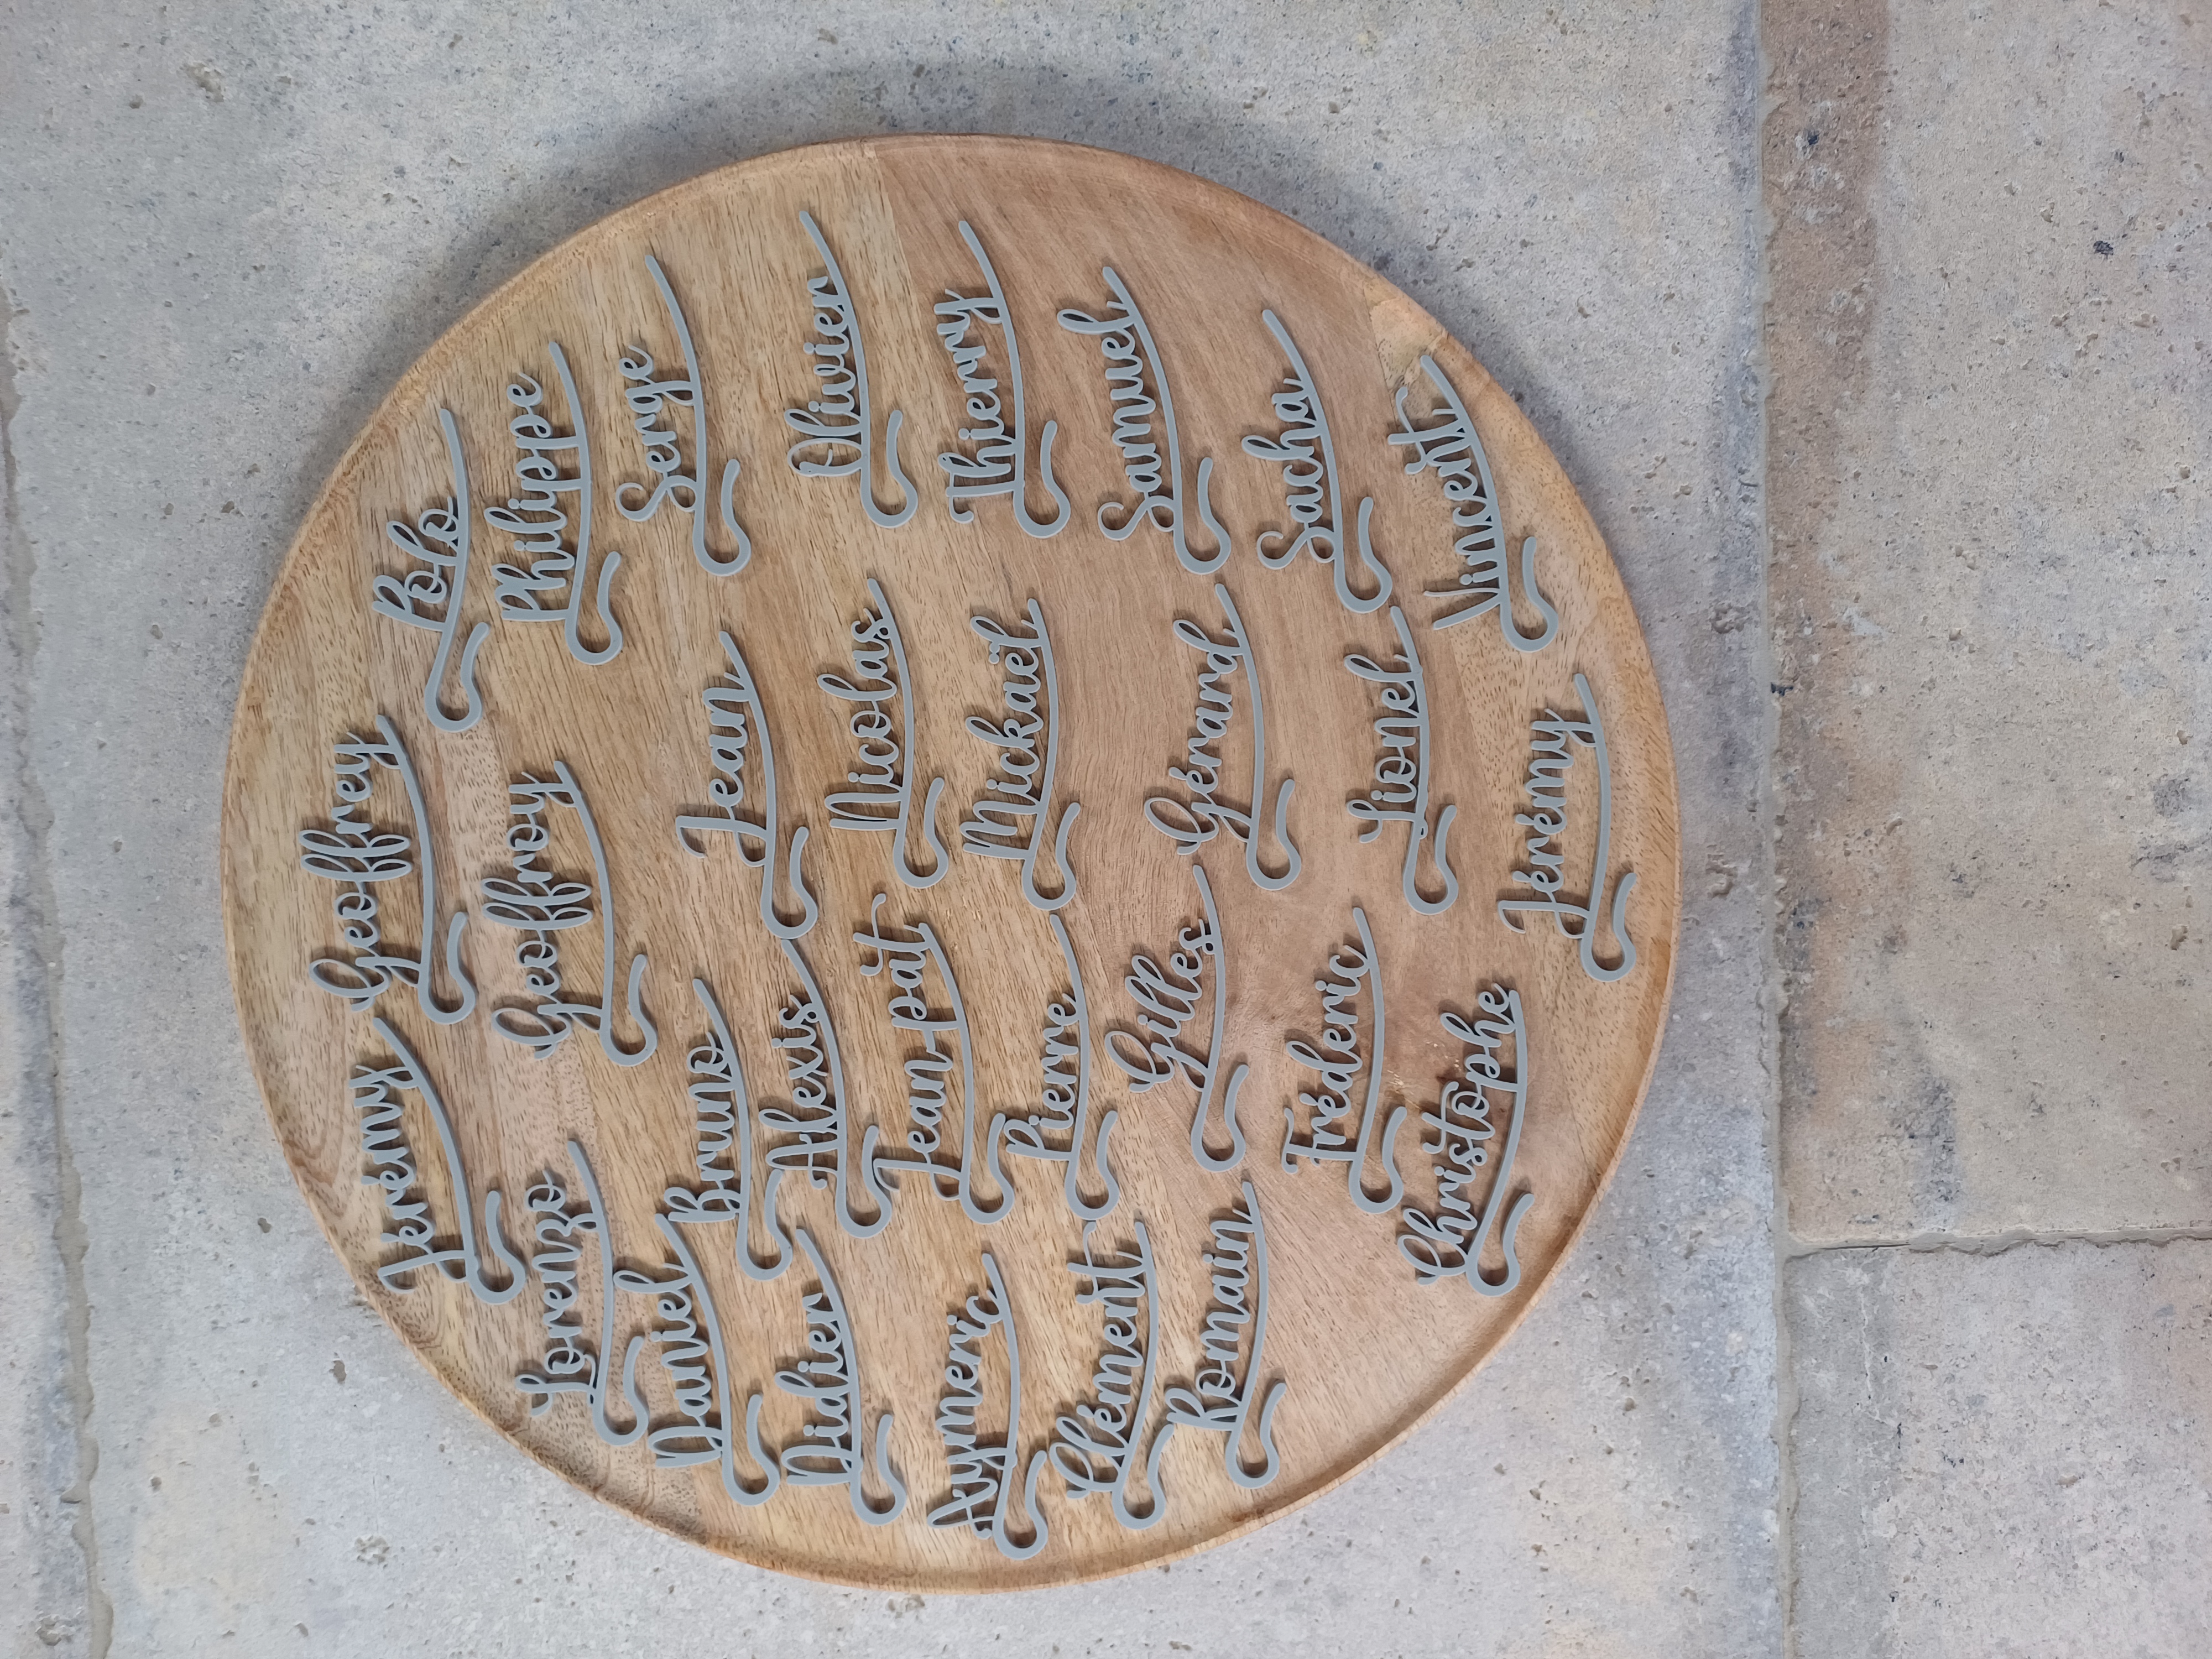 Jérémy
Geoffrey
Polo
Lorenzo
Geoffroy
Philippe
Daniel
Bruno
Jean
Serge
Didier
Alexis
Nicolas
Olivier
Aymeric
Jean-pat
Mickaël
Thierry
Clément
Pierre
Samuel
Romain
Gilles
Gérard
Sacha
Frédéric
Lionel
Vincent
Christophe
Jérémy